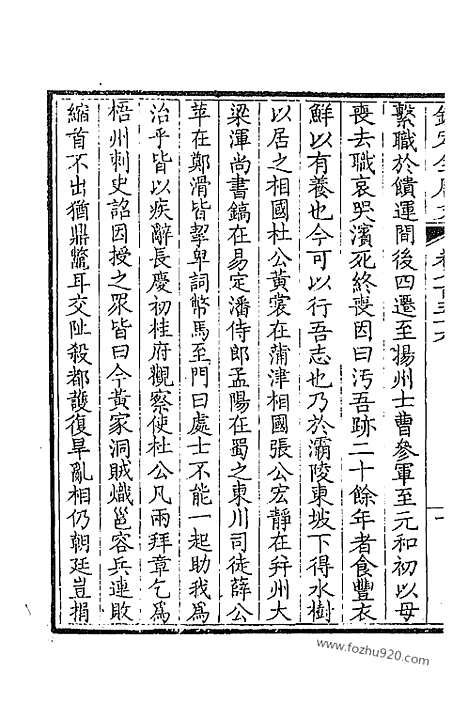 繫職於饋運間後四遷至揚州士曹參軍至元和初以母
喪去職哀哭濱死終喪因曰汚吾跡二十餘年者食豐衣
鮮以有養也今可以行吾志也乃於灞陵東坡下得水樹
以居之相國杜公黃裳在蒲津相國張公宏靜在并州大
梁渾尚書鎬在易定潘侍郎孟陽在蜀之東川司徒薛公
苹在鄭滑皆挈卑詞幣馬至門曰處士不能一起助我為
治乎皆以疾辭長慶初桂府觀察使杜公凡兩拜章乞為
梧州刺史詔因授之眾皆曰今黃家洞賊熾邕容兵連敗
縮首不出猶鼎鼈耳交阯殺都護復旱亂相仍朝廷豈捐
www.fozhu920.com